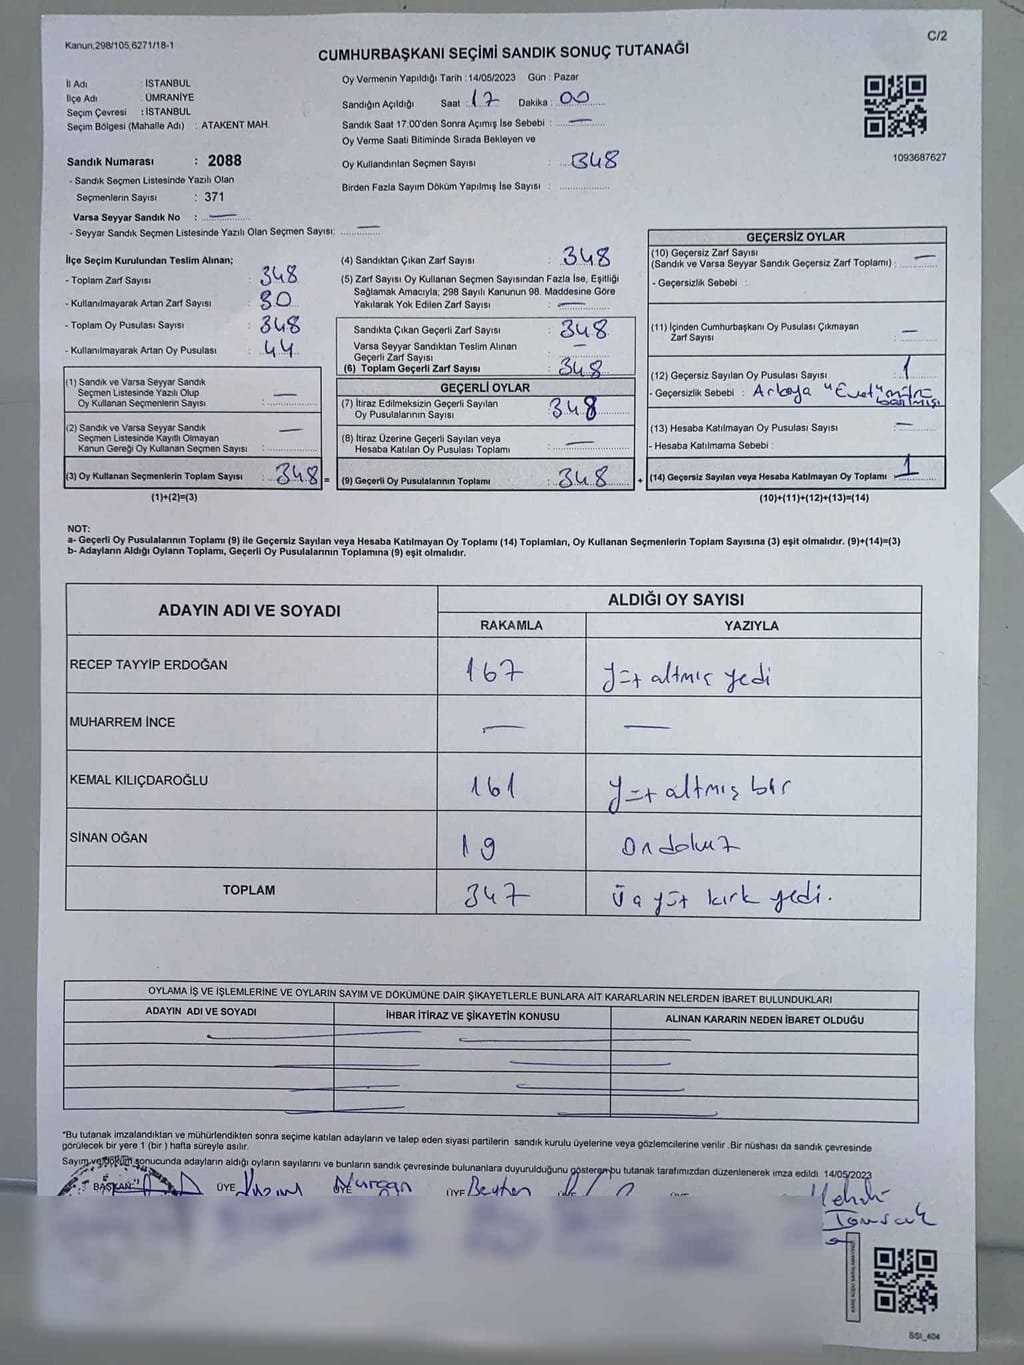 Kanun;298/105,6271/18-1
C/2
CUMHURBAŞKANI SEÇİMİ SANDIK SONUÇ TUTANAĞI
İl Adı : İSTANBUL
İlçe Adı : ÜMRANİYE
Seçim Çevresi : İSTANBUL
Seçim Bölgesi (Mahalle Adı) : ATAKENT MAH.
Sandık Numarası : 2088
- Sandık Seçmen Listesinde Yazılı Olan
Seçmenlerin Sayısı : 371
Varsa Seyyar Sandık No : —
- Seyyar Sandık Seçmen Listesinde Yazılı Olan Seçmen Sayısı: —
Oy Vermenin Yapıldığı Tarih : 14/05/2023 Gün : Pazar
Sandığın Açıldığı Saat : 17 Dakika : 00
Sandık Saat 17:00'den Sonra Açımış İse Sebebi : —
Oy Verme Saati Bitiminde Sırada Bekleyen ve
Oy Kullandırılan Seçmen Sayısı : 348
Birden Fazla Sayım Döküm Yapılmış İse Sayısı :
1093687627
İlçe Seçim Kurulundan Teslim Alınan;
- Toplam Zarf Sayısı : 348
- Kullanılmayarak Artan Zarf Sayısı : 30
- Toplam Oy Pusulası Sayısı : 348
- Kullanılmayarak Artan Oy Pusulası : 44
(1) Sandık ve Varsa Seyyar Sandık
Seçmen Listesinde Yazılı Olup
Oy Kullanan Seçmenlerin Sayısı : —
(2) Sandık ve Varsa Seyyar Sandık
Seçmen Listesinde Kayıtlı Olmayan
Kanun Gereği Oy Kullanan Seçmen Sayısı : —
(3) Oy Kullanan Seçmenlerin Toplam Sayısı : 348 =
(1)+(2)=(3)
(4) Sandıktan Çıkan Zarf Sayısı : 348
(5) Zarf Sayısı Oy Kullanan Seçmen Sayısından Fazla İse, Eşitliği
Sağlamak Amacıyla; 298 Sayılı Kanunun 98. Maddesine Göre
Yakılarak Yok Edilen Zarf Sayısı : —
Sandıkta Çıkan Geçerli Zarf Sayısı : 348
Varsa Seyyar Sandıktan Teslim Alınan
Geçerli Zarf Sayısı : —
(6) Toplam Geçerli Zarf Sayısı : 348
GEÇERLİ OYLAR
(7) İtiraz Edilmeksizin Geçerli Sayılan
Oy Pusulalarının Sayısı : 348
(8) İtiraz Üzerine Geçerli Sayılan veya
Hesaba Katılan Oy Pusulası Toplamı : —
(9) Geçerli Oy Pusulalarının Toplamı : 348 +
GEÇERSİZ OYLAR
(10) Geçersiz Zarf Sayısı
(Sandık ve Varsa Seyyar Sandık Geçersiz Zarf Toplamı) : —
- Geçersizlik Sebebi :
(11) İçinden Cumhurbaşkanı Oy Pusulası Çıkmayan
Zarf Sayısı : —
(12) Geçersiz Sayılan Oy Pusulası Sayısı : 1
- Geçersizlik Sebebi : Arkaya "Evet"
(13) Hesaba Katılmayan Oy Pusulası Sayısı : —
- Hesaba Katılmama Sebebi :
(14) Geçersiz Sayılan veya Hesaba Katılmayan Oy Toplamı : 1
(10)+(11)+(12)+(13)=(14)
NOT:
a- Geçerli Oy Pusulalarının Toplamı (9) ile Geçersiz Sayılan veya Hesaba Katılmayan Oy Toplamı (14) Toplamları, Oy Kullanan Seçmenlerin Toplam Sayısına (3) eşit olmalıdır. (9)+(14)=(3)
b- Adayların Aldığı Oyların Toplamı, Geçerli Oy Pusulalarının Toplamına (9) eşit olmalıdır.
ADAYIN ADI VE SOYADI
ALDIĞI OY SAYISI
RAKAMLA YAZIYLA
RECEP TAYYİP ERDOĞAN 167 yüz altmış yedi
MUHARREM İNCE — —
KEMAL KILIÇDAROĞLU 161 yüz altmış bir
SİNAN OĞAN 19 on dokuz
TOPLAM 347 üç yüz kırk yedi.
OYLAMA İŞ VE İŞLEMLERİNE VE OYLARIN SAYIM VE DÖKÜMÜNE DAİR ŞİKAYETLERLE BUNLARA AİT KARARLARIN NELERDEN İBARET BULUNDUKLARI
ADAYIN ADI VE SOYADI İHBAR İTİRAZ VE ŞİKAYETİN KONUSU ALINAN KARARIN NEDEN İBARET OLDUĞU
*Bu tutanak imzalandıktan ve mühürlendikten sonra seçime katılan adayların ve talep eden siyasi partilerin sandık kurulu üyelerine veya gözlemcilerine verilir .Bir nüshası da sandık çevresinde
görülecek bir yere 1 (bir ) hafta süreyle asılır.
Sayım ve döküm sonucunda adayların aldığı oyların sayılarını ve bunların sandık çevresinde bulunanlara duyurulduğunu gösteren bu tutanak tarafımızdan düzenlenerek imza edildi. 14/05/2023
BAŞKAN ÜYE ÜYE Nurcan ÜYE Beyhan
SSI_404